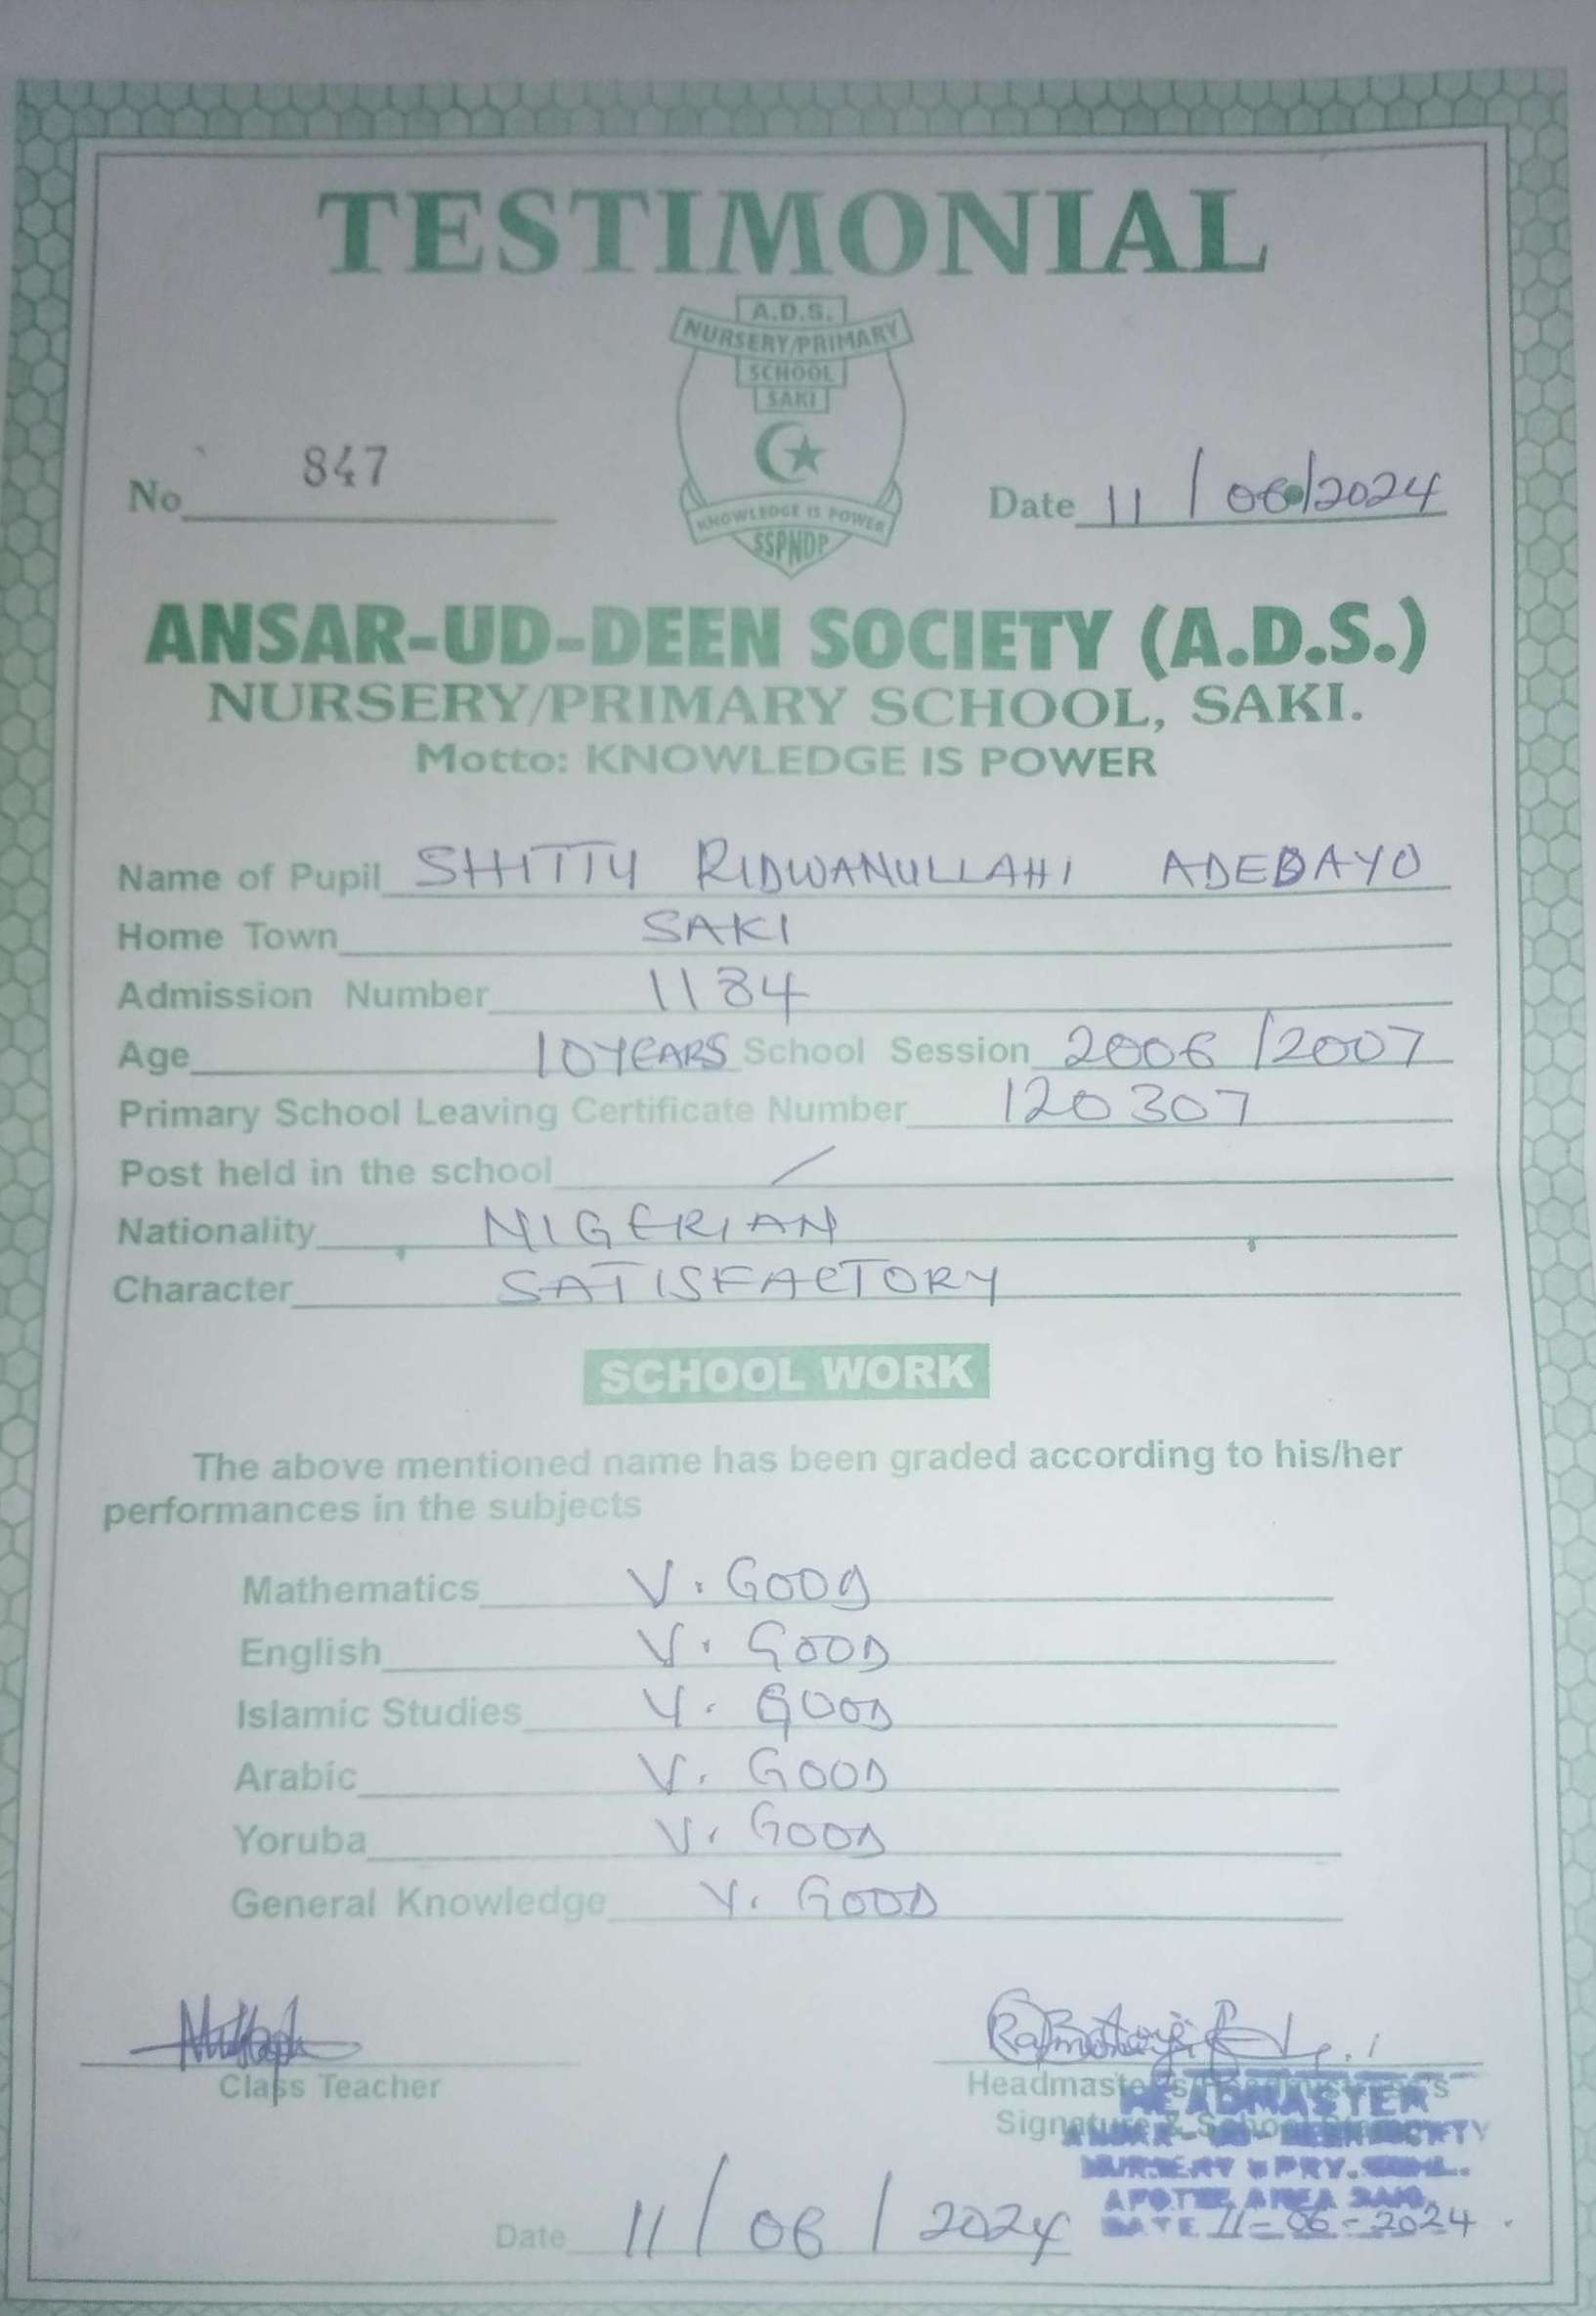 TESTIMONIAL
A.D.S.
NURSERY/PRIMARY
SCHOOL
SAKI
KNOWLEDGE IS POWER
SSPNDP
No 847
Date 11/06/2024
ANSAR-UD-DEEN SOCIETY (A.D.S.)
NURSERY/PRIMARY SCHOOL, SAKI.
Motto: KNOWLEDGE IS POWER
Name of Pupil SHITTY RIDWANULLAHI ADEBAYO
Home Town SAKI
Admission Number 1184
Age 10YEARS School Session 2006/2007
Primary School Leaving Certificate Number 120307
Post held in the school /
Nationality NIGERIAN
Character SATISFACTORY
SCHOOL WORK
The above mentioned name has been graded according to his/her
performances in the subjects
Mathematics V. GOOD
English V. GOOD
Islamic Studies V. GOOD
Arabic V. GOOD
Yoruba V. GOOD
General Knowledge V. GOOD
Class Teacher
Headmaster's
Signature & School
HEADMASTER
ANSAR-UD-DEEN SOCIETY
NURSERY & PRY. SCHL.
AREA SAKI
DATE 11-06-2024
Date 11/06/2024